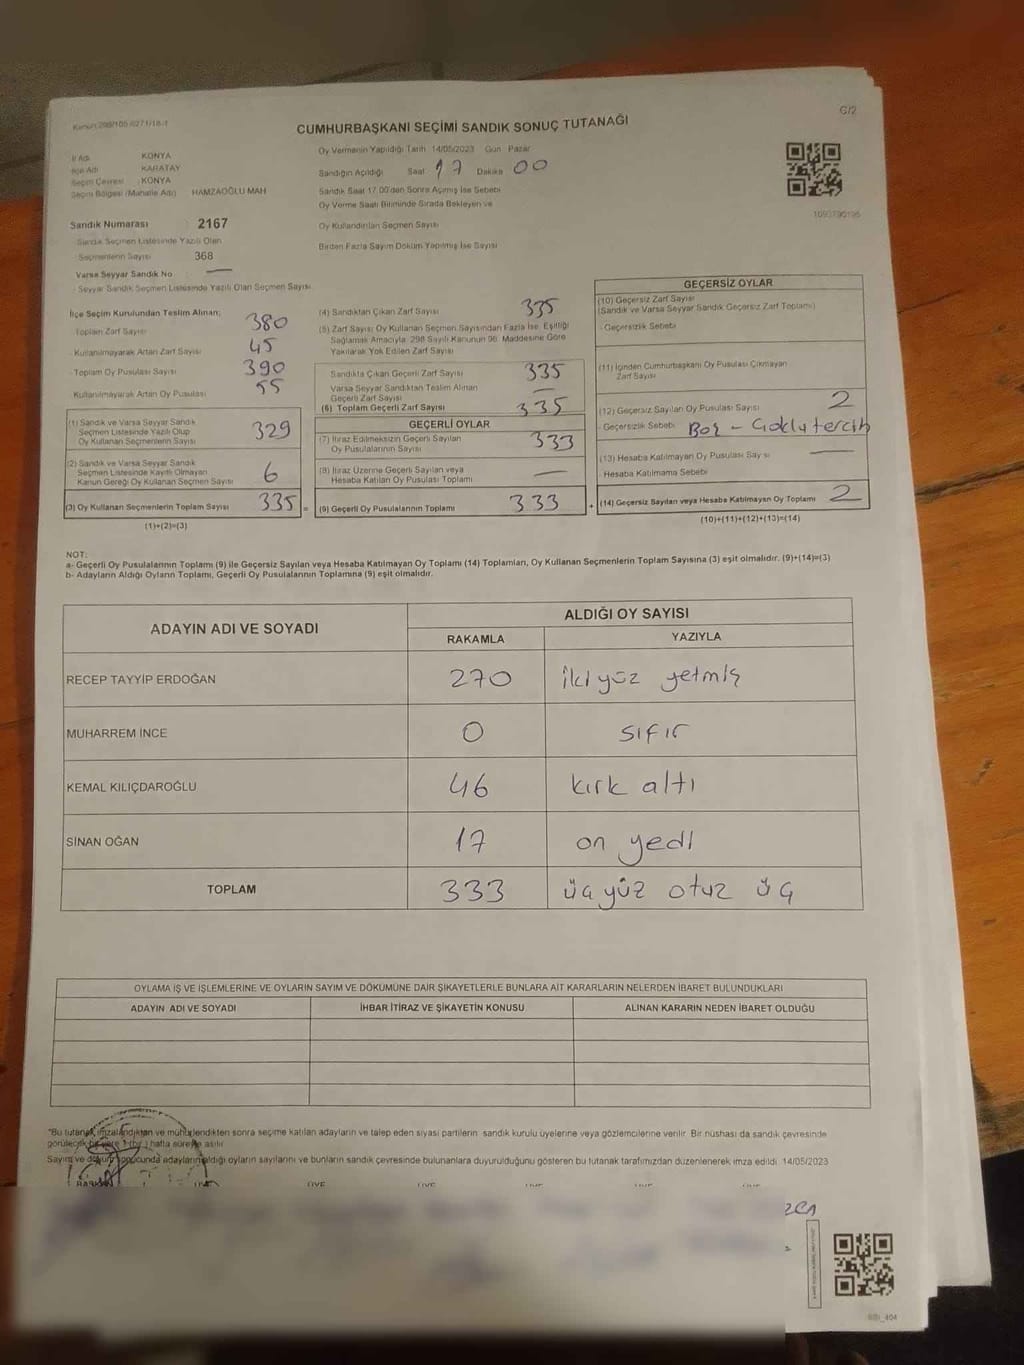 G/2
CUMHURBAŞKANI SEÇİMİ SANDIK SONUÇ TUTANAĞI
İl Adı KONYA
İlçe Adı KARATAY
Seçim Çevresi KONYA
Seçim Bölgesi (Mahalle Adı) HAMZAOĞLU MAH
Sandık Numarası 2167
Sandık Seçmen Listesinde Yazılı Olan
Seçmenlerin Sayısı 368
Varsa Seyyar Sandık No —
Seyyar Sandık Seçmen Listesinde Yazılı Olan Seçmen Sayısı
Oy Vermenin Yapıldığı Tarih 14/05/2023 Gün Pazar
Sandığın Açıldığı Saat 17 Dakika 00
Sandık Saat 17.00'den Sonra Açılmış İse Sebebi
Oy Verme Saati Bitiminde Sırada Bekleyen ve
Oy Kullandırılan Seçmen Sayısı
Birden Fazla Sayım Döküm Yapılmış İse Sayısı
1093790196
İlçe Seçim Kurulundan Teslim Alınan;
Toplam Zarf Sayısı 380
Kullanılmayarak Artan Zarf Sayısı 45
Toplam Oy Pusulası Sayısı 390
Kullanılmayarak Artan Oy Pusulası 55
(1) Sandık ve Varsa Seyyar Sandık
Seçmen Listesinde Yazılı Olup
Oy Kullanan Seçmenlerin Sayısı 329
(2) Sandık ve Varsa Seyyar Sandık
Seçmen Listesinde Kayıtlı Olmayan
Kanun Gereği Oy Kullanan Seçmen Sayısı 6
(3) Oy Kullanan Seçmenlerin Toplam Sayısı 335 =
(1)+(2)=(3)
(4) Sandıktan Çıkan Zarf Sayısı 335
(5) Zarf Sayısı Oy Kullanan Seçmen Sayısından Fazla İse, Eşitliği
Sağlamak Amacıyla, 298 Sayılı Kanunun 98. Maddesine Göre
Yakılarak Yok Edilen Zarf Sayısı
Sandıkta Çıkan Geçerli Zarf Sayısı 335
Varsa Seyyar Sandıktan Teslim Alınan
Geçerli Zarf Sayısı —
(6) Toplam Geçerli Zarf Sayısı 335
GEÇERLİ OYLAR
(7) İtiraz Edilmeksizin Geçerli Sayılan
Oy Pusulalarının Sayısı 333
(8) İtiraz Üzerine Geçerli Sayılan veya
Hesaba Katılan Oy Pusulası Toplamı —
(9) Geçerli Oy Pusulalarının Toplamı 333 +
GEÇERSİZ OYLAR
(10) Geçersiz Zarf Sayısı
(Sandık ve Varsa Seyyar Sandık Geçersiz Zarf Toplamı)
Geçersizlik Sebebi
(11) İçinden Cumhurbaşkanı Oy Pusulası Çıkmayan
Zarf Sayısı
(12) Geçersiz Sayılan Oy Pusulası Sayısı 2
Geçersizlik Sebebi Boş - Çoklu tercih
(13) Hesaba Katılmayan Oy Pusulası Sayısı —
Hesaba Katılmama Sebebi
(14) Geçersiz Sayılan veya Hesaba Katılmayan Oy Toplamı 2
(10)+(11)+(12)+(13)=(14)
NOT:
a- Geçerli Oy Pusulalarının Toplamı (9) ile Geçersiz Sayılan veya Hesaba Katılmayan Oy Toplamı (14) Toplamları, Oy Kullanan Seçmenlerin Toplam Sayısına (3) eşit olmalıdır. (9)+(14)=(3)
b- Adayların Aldığı Oyların Toplamı, Geçerli Oy Pusulalarının Toplamına (9) eşit olmalıdır.
ADAYIN ADI VE SOYADI
ALDIĞI OY SAYISI
RAKAMLA YAZIYLA
RECEP TAYYİP ERDOĞAN 270 iki yüz yetmiş
MUHARREM İNCE 0 sıfır
KEMAL KILIÇDAROĞLU 46 kırk altı
SİNAN OĞAN 17 on yedi
TOPLAM 333 üç yüz otuz üç
OYLAMA İŞ VE İŞLEMLERİNE VE OYLARIN SAYIM VE DÖKÜMÜNE DAİR ŞİKAYETLERLE BUNLARA AİT KARARLARIN NELERDEN İBARET BULUNDUKLARI
ADAYIN ADI VE SOYADI İHBAR İTİRAZ VE ŞİKAYETİN KONUSU ALINAN KARARIN NEDEN İBARET OLDUĞU
"Bu tutanak imzalandıktan ve mühürlendikten sonra seçime katılan adayların ve talep eden siyasi partilerin sandık kurulu üyelerine veya gözlemcilerine verilir. Bir nüshası da sandık çevresinde
görülecek bir yere 1 (bir) hafta süreyle asılır.
Sayım ve döküm sonucunda adayların aldığı oyların sayılarını ve bunların sandık çevresinde bulunanlara duyurulduğunu gösteren bu tutanak tarafımızdan düzenlenerek imza edildi. 14/05/2023
BAŞKAN ÜYE ÜYE ÜYE ÜYE ÜYE